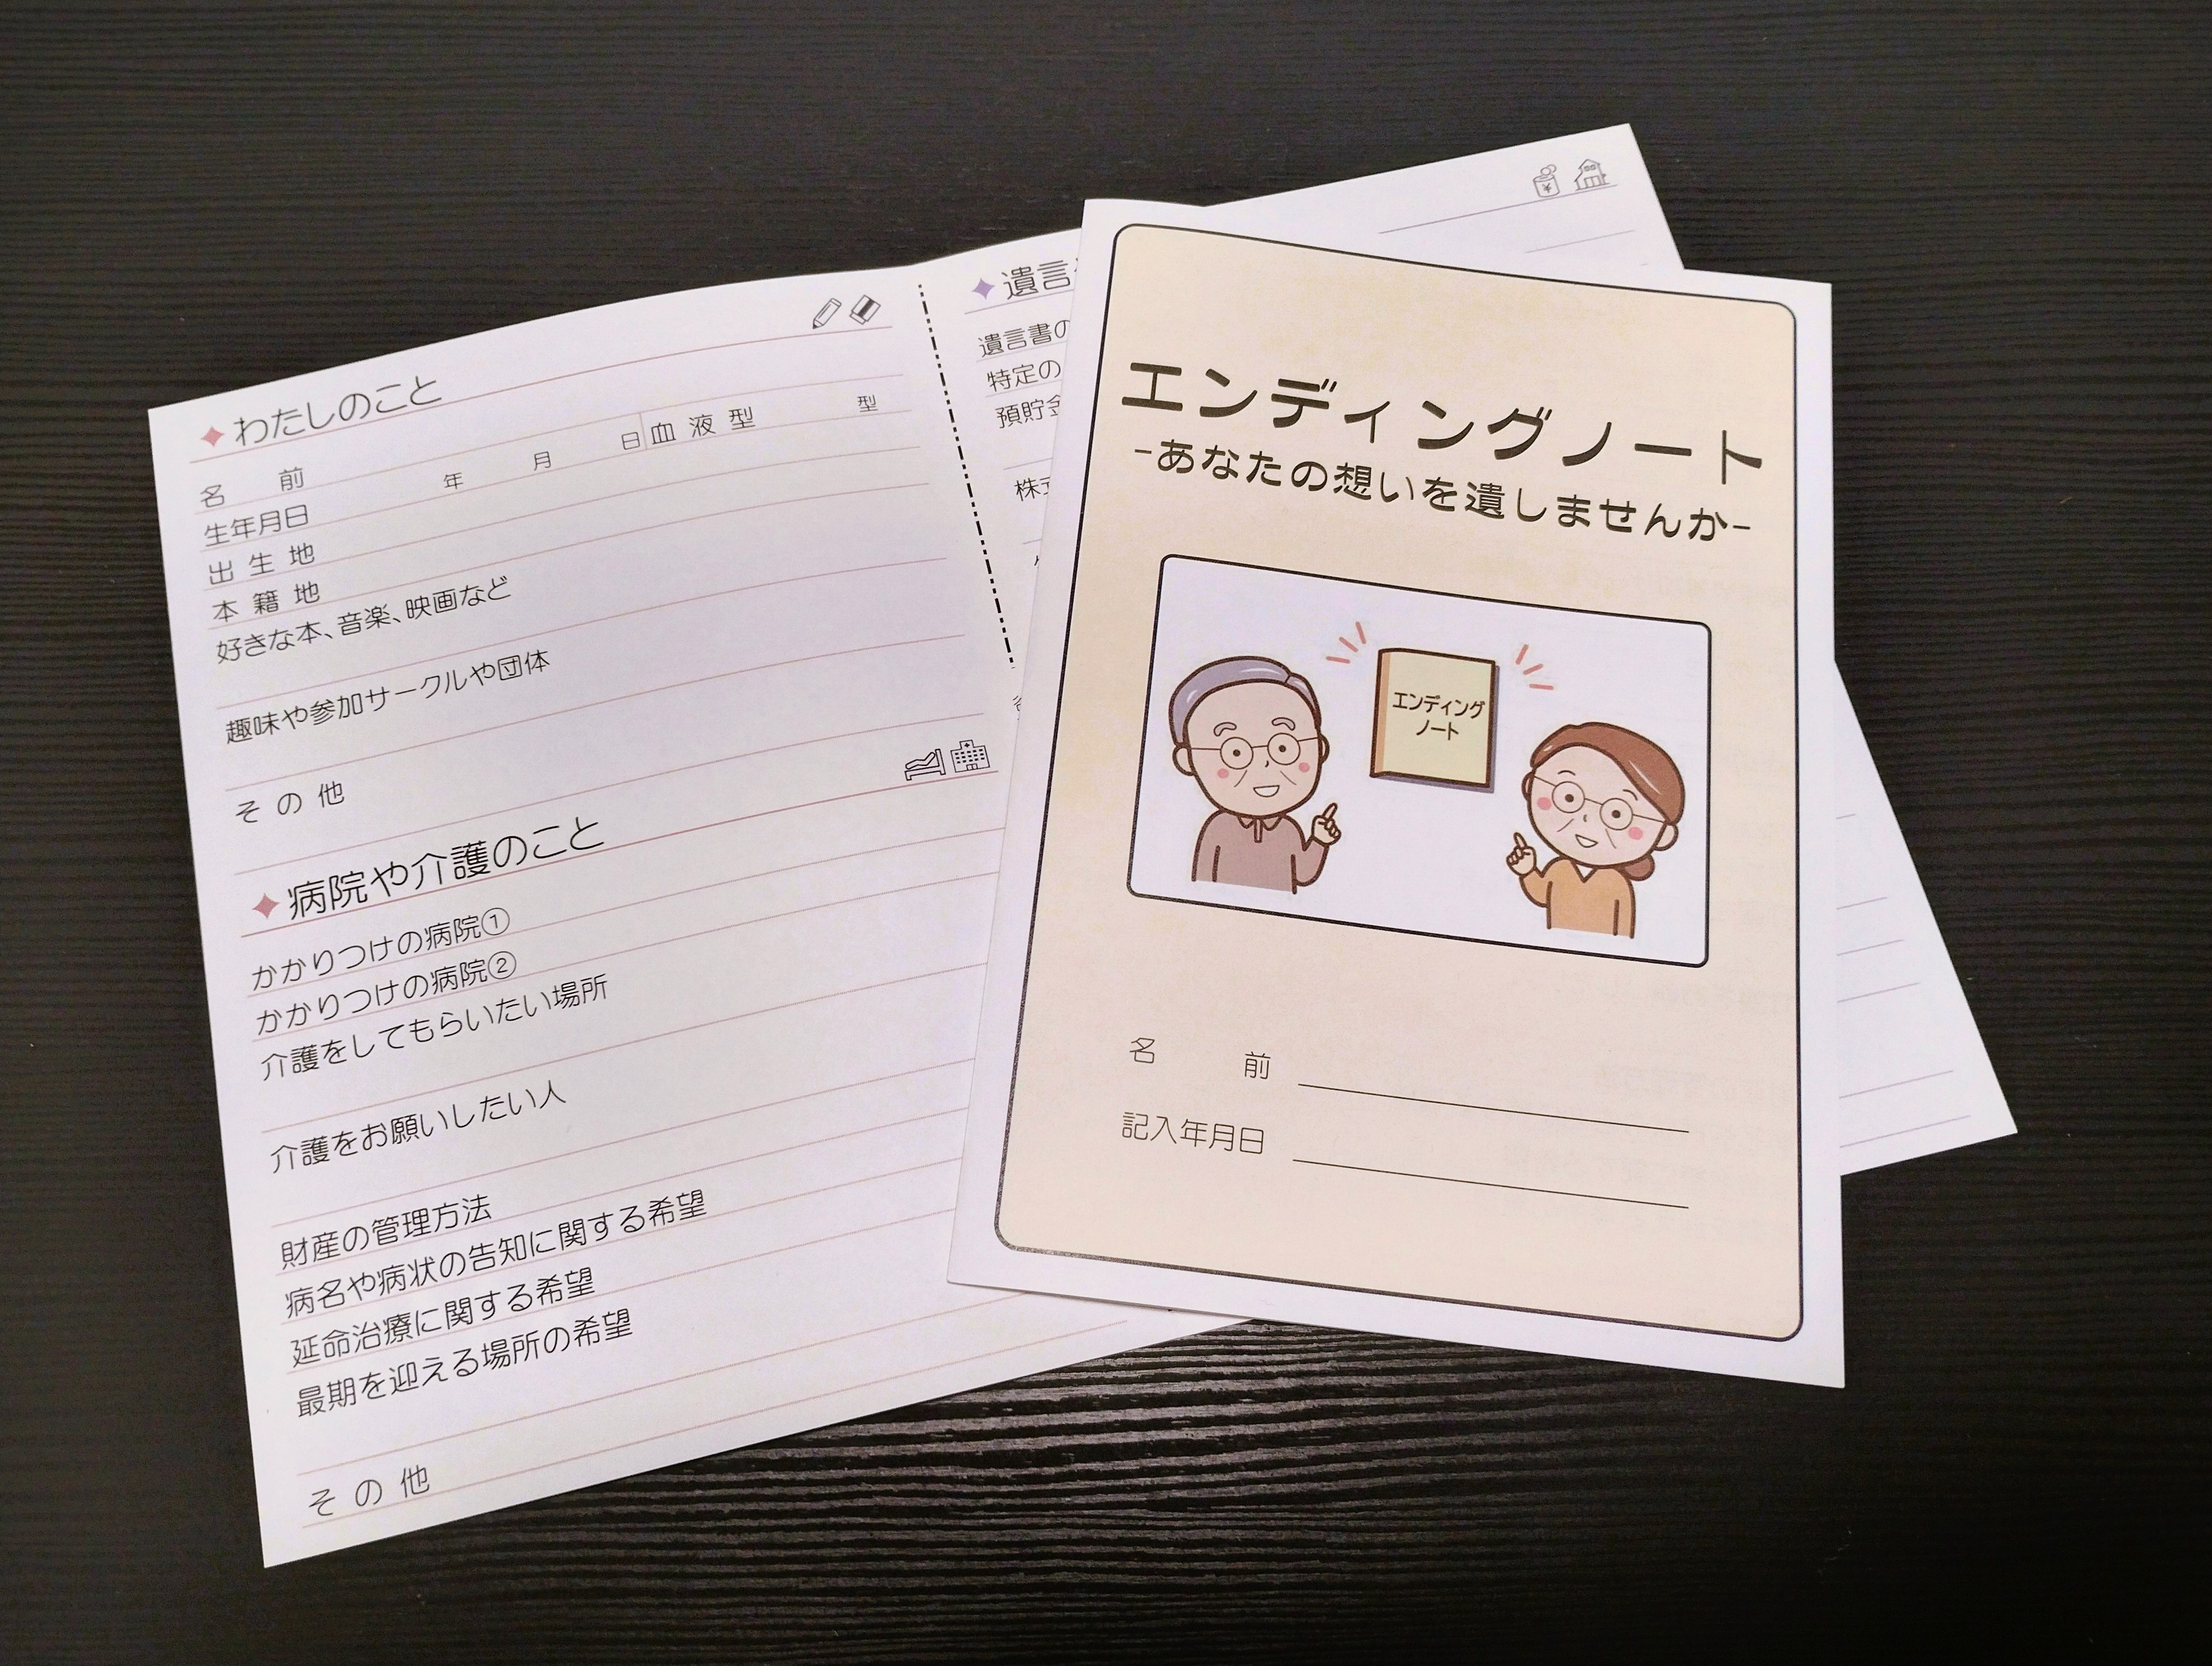 わたしのこと
名前
生年月日 年 月 日 血液型 型
出生地
本籍地
好きな本、音楽、映画など
趣味や参加サークルや団体
その他
病院や介護のこと
かかりつけの病院①
かかりつけの病院②
介護をしてもらいたい場所
介護をお願いしたい人
財産の管理方法
病名や病状の告知に関する希望
延命治療に関する希望
最期を迎える場所の希望
その他
遺言
遺言書の
特定の
預貯金
株式
エンディングノート
-あなたの想いを遺しませんか-
エンディング
ノート
名前
記入年月日